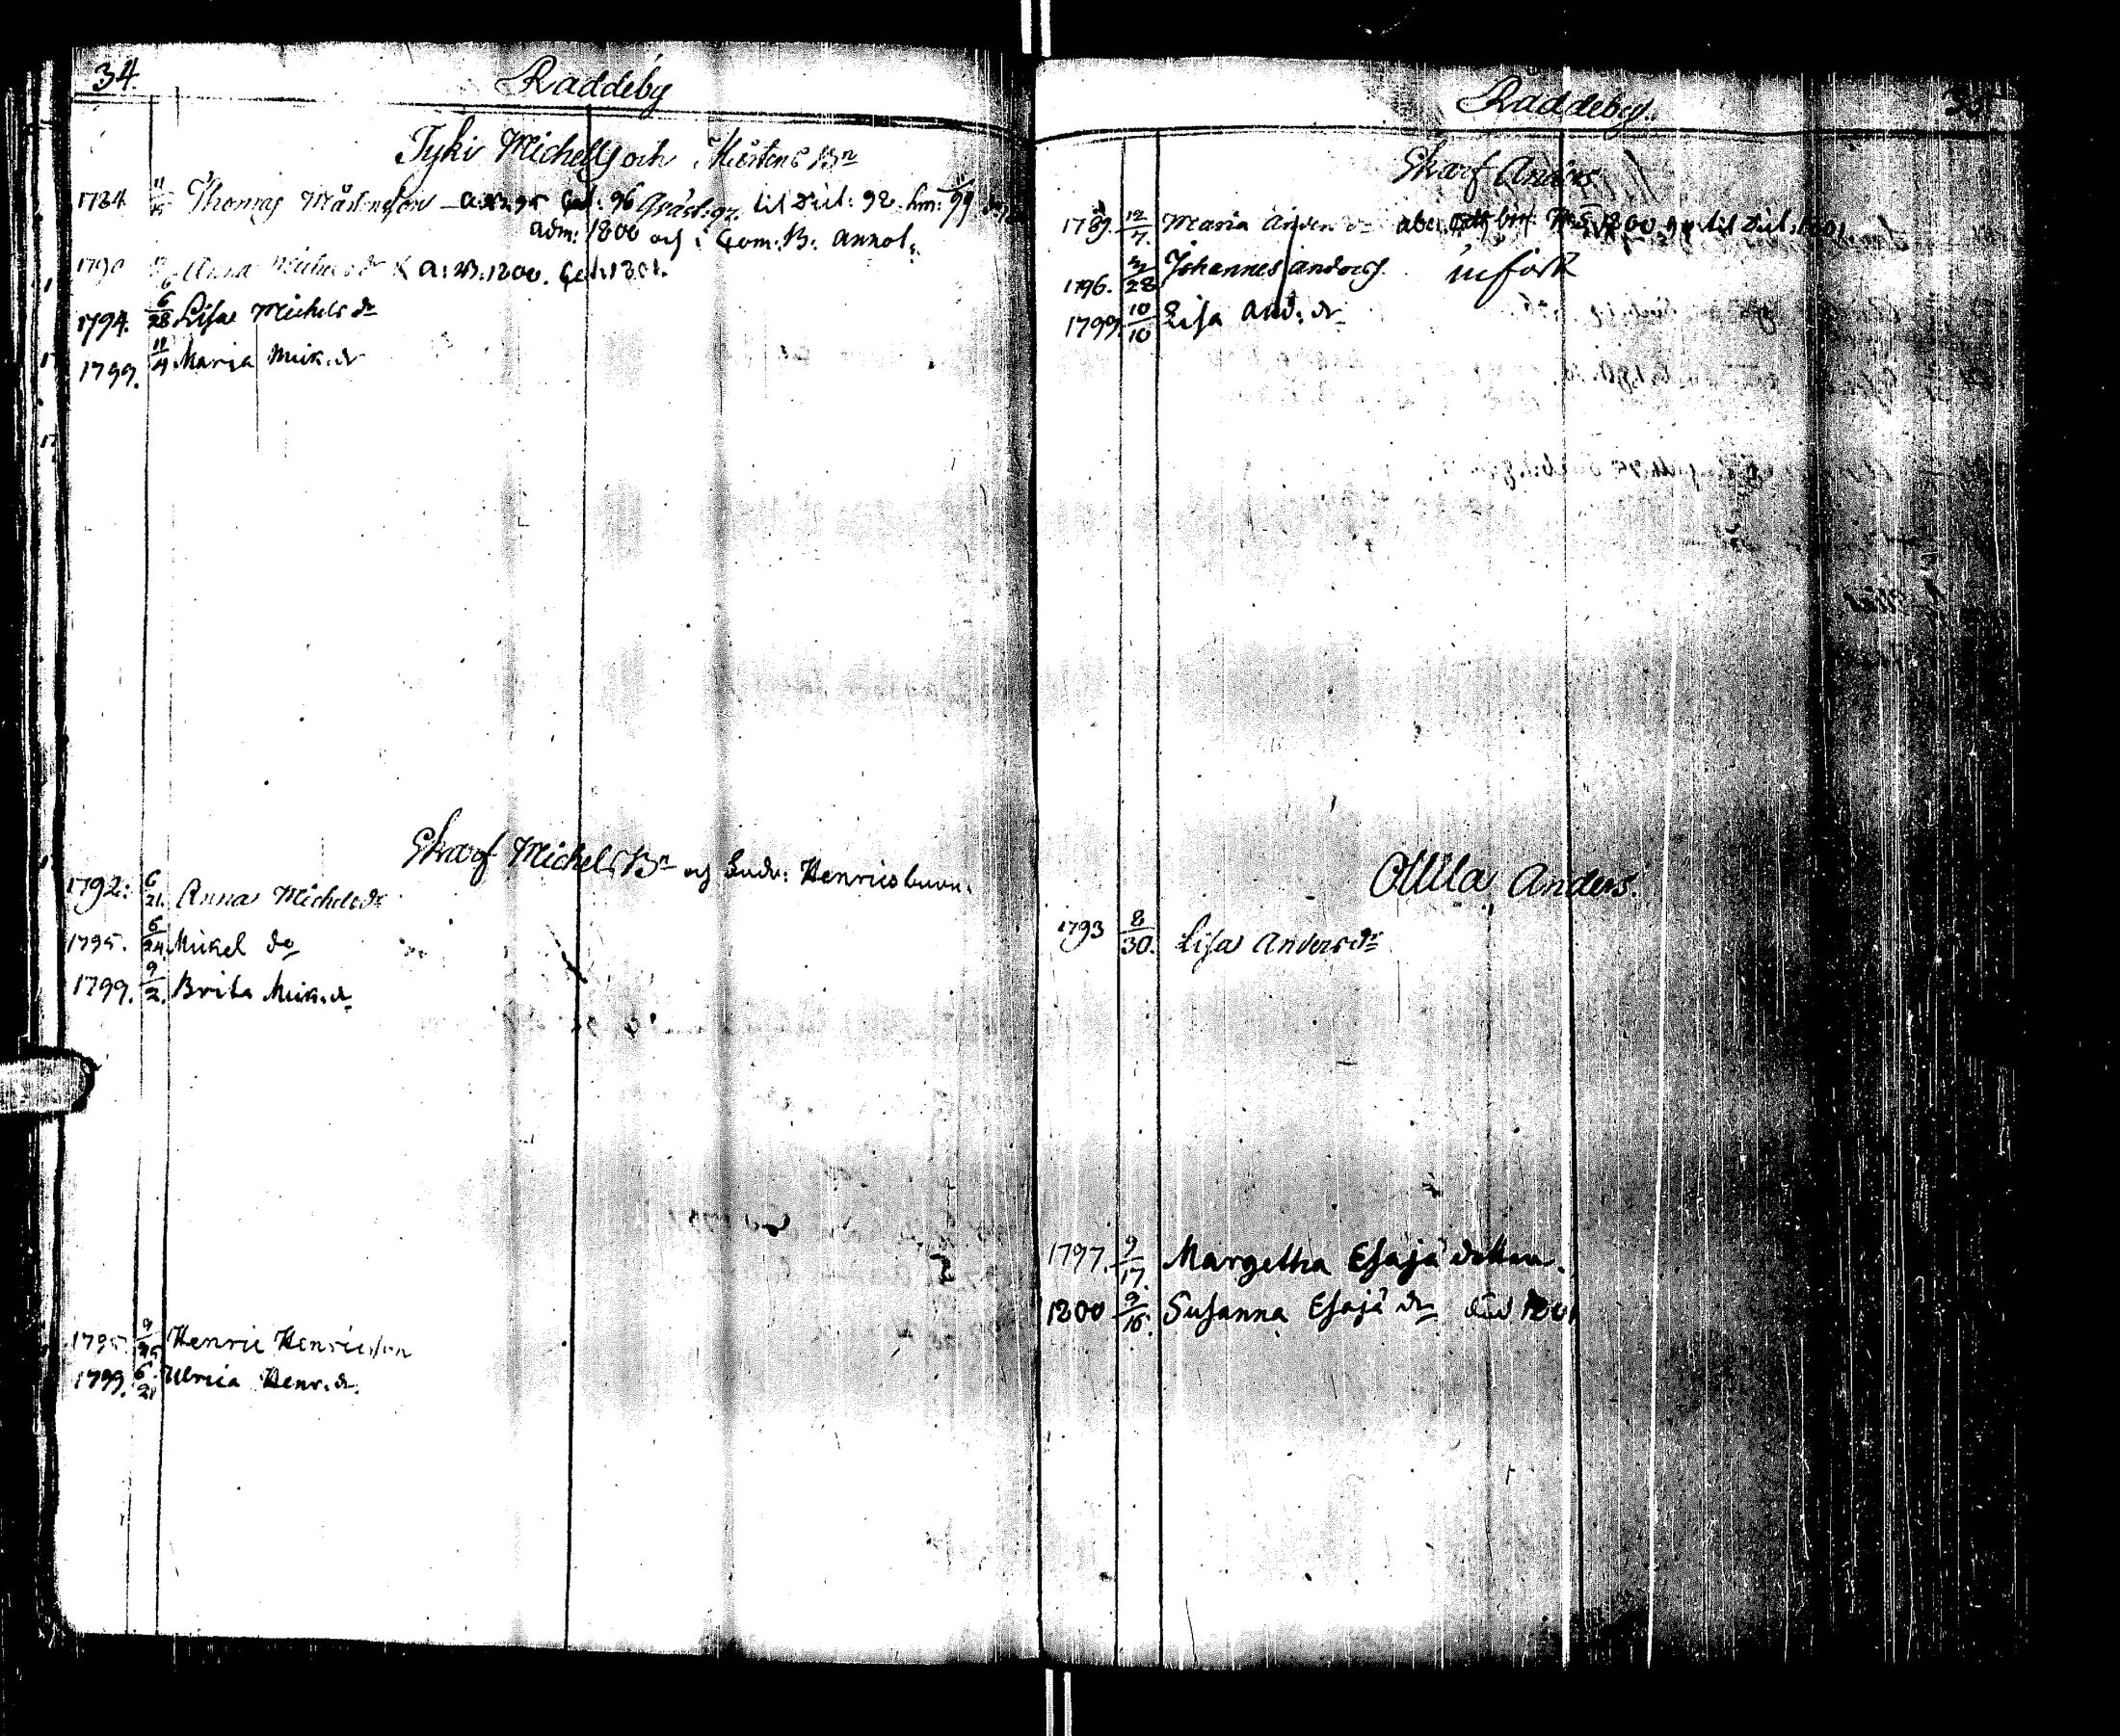 34.
Raddeby
Tyki Michels och Mårtens Bn
1784 Thomas Mårtensson a:B: 95 Cat: 96 Gväst: 97. til Dict: 98. hm: 99
adm: 1800 och i Com: B: annot:
1790 Anna Michelsdr a: B: 1800. Cat: 1801.
1794. 6/28 Lisa Michelsdr
1799. 11/4 Maria Mick. dr
Skarf Michels Bn och Sudr: Henrics barn.
1792: 6/21. Anna Michelsdr
1795. 6/24 Mickel do
1799. 9/2. Brita Mick. dr
1795 9/25 Henric Henricsson
1799. 6/21 Ulrica Henr. dr.
Raddeby.
35
Skarf Anders
1789. 12/7. Maria Andersdr 1800 til Dict: 1801
1796. 2/28 Johannes Anderss. införd
1799. 10/10 Lisa And: dr
Ollila Anders.
1793 8/30. Lisa Andersdr
1797. 9/17. Margetha Esajä dotter.
1800 9/16. Susanna Esajä dr död 1801